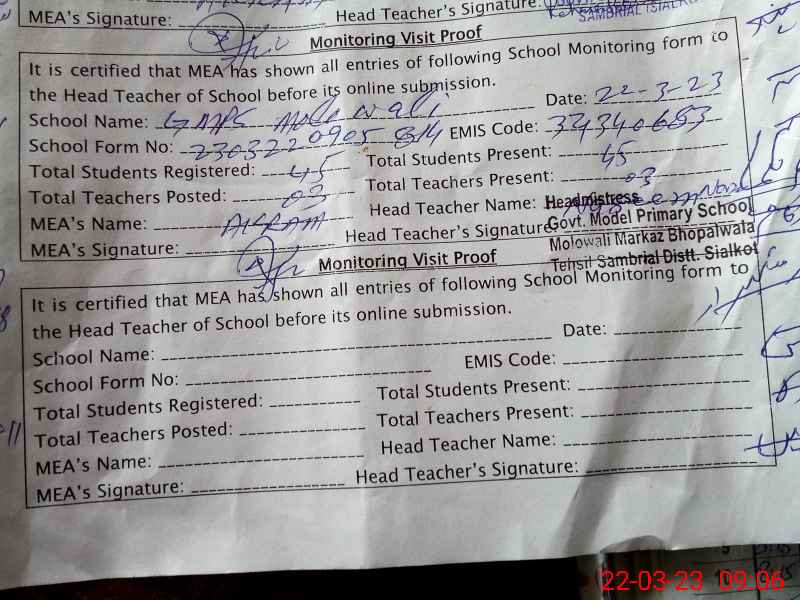 MEA's Signature: Head Teacher's Signature:
SAMBRIAL (SIALKOT
Monitoring Visit Proof
It is certified that MEA has shown all entries of following School Monitoring form to
the Head Teacher of School before its online submission.
Date: 22-3-23
School Name: GMPS Molo wali
School Form No: 2303220905 EMIS Code: 34340683
Total Students Registered: 45 Total Students Present: 45
Total Teachers Posted: 03 Total Teachers Present: 03
MEA's Name: AKRAM Head Teacher Name:
MEA's Signature: Head Teacher's Signature
Headmistress
Govt. Model Primary School
Molowali Markaz Bhopalwala
Tehsil Sambrial Distt. Sialkot
Monitoring Visit Proof
It is certified that MEA has shown all entries of following School Monitoring form to
the Head Teacher of School before its online submission.
School Name: Date:
School Form No: EMIS Code:
Total Students Registered: Total Students Present:
Total Teachers Posted: Total Teachers Present:
MEA's Name: Head Teacher Name:
MEA's Signature: Head Teacher's Signature:
22-03-23 09:06